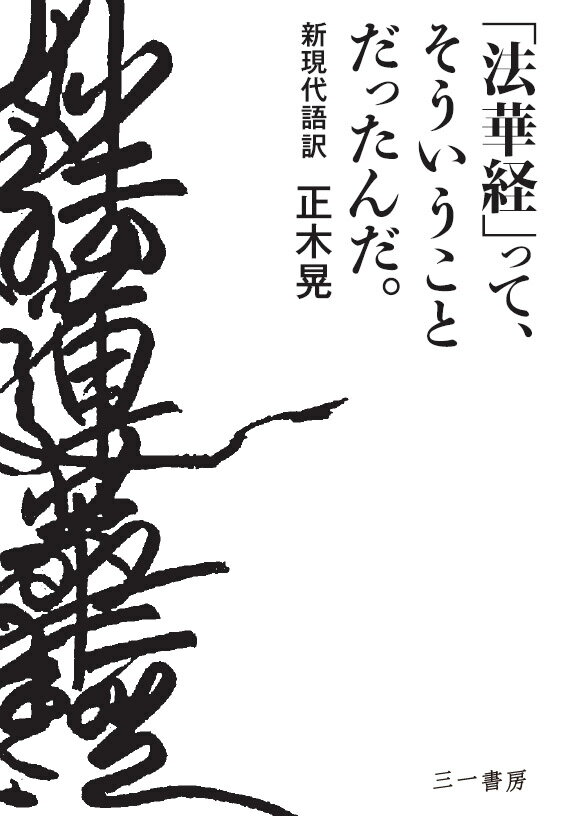 「法華経」って、
そういうこと
だったんだ。
新現代語訳　正木晃
妙法蓮華經
三一書房